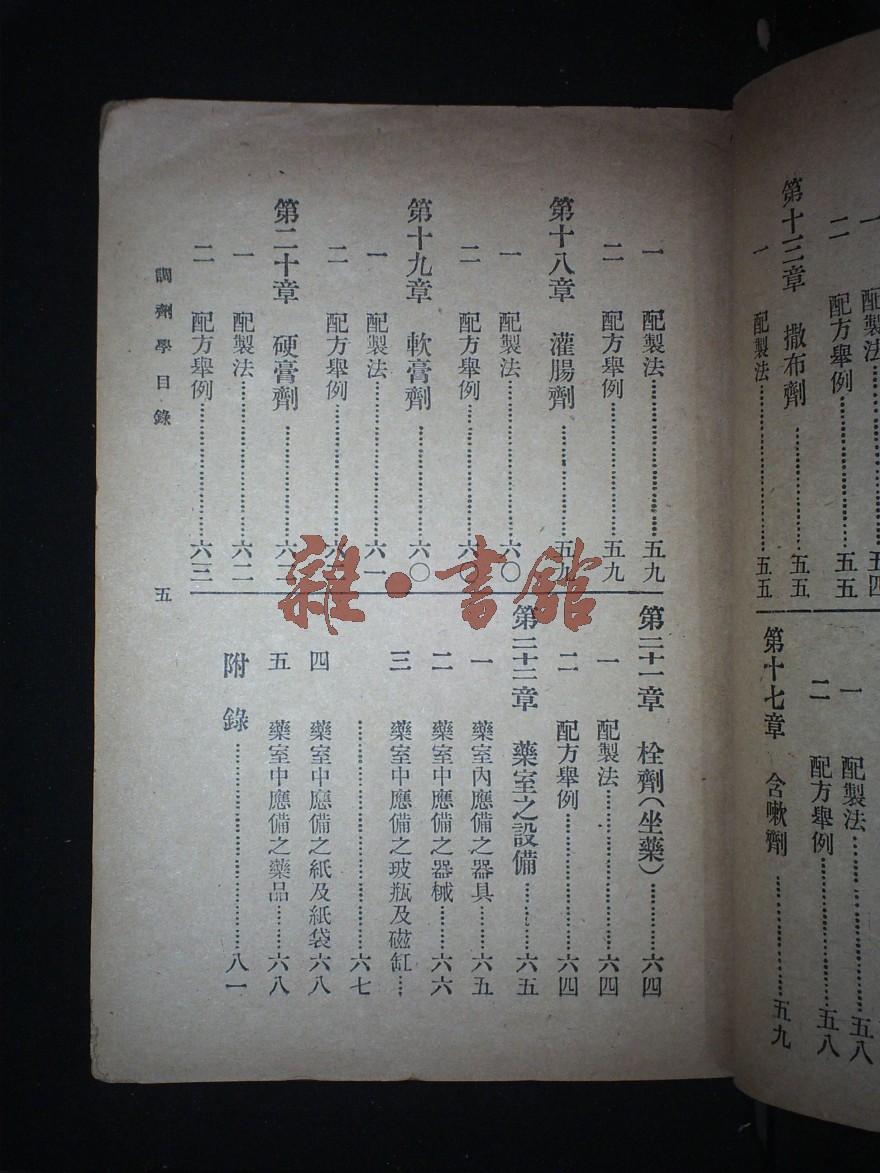 一 配製法……五四
二 配方舉例……五五
第十三章 撒布劑……五五
一 配製法……五五
一 配製法……五八
二 配方舉例……五八
第十七章 含嗽劑……五九
一 配製法……五九
二 配方舉例……五九
第十八章 灌腸劑……五九
一 配製法……六〇
二 配方舉例……六〇
第十九章 軟膏劑……六〇
一 配製法……六一
二 配方舉例……六
第二十章 硬膏劑……六二
一 配製法……六二
二 配方舉例……六三
第二十一章 栓劑(坐藥)……六四
一 配製法……六四
二 配方舉例……六四
第二十二章 藥室之設備……六五
一 藥室內應備之器具……六五
二 藥室中應備之器械……六六
三 藥室中應備之玻瓶及磁缸…
……六七
四 藥室中應備之紙及紙袋六八
五 藥室中應備之藥品……六八
附錄……八一
調劑學目錄 五
雜·書館